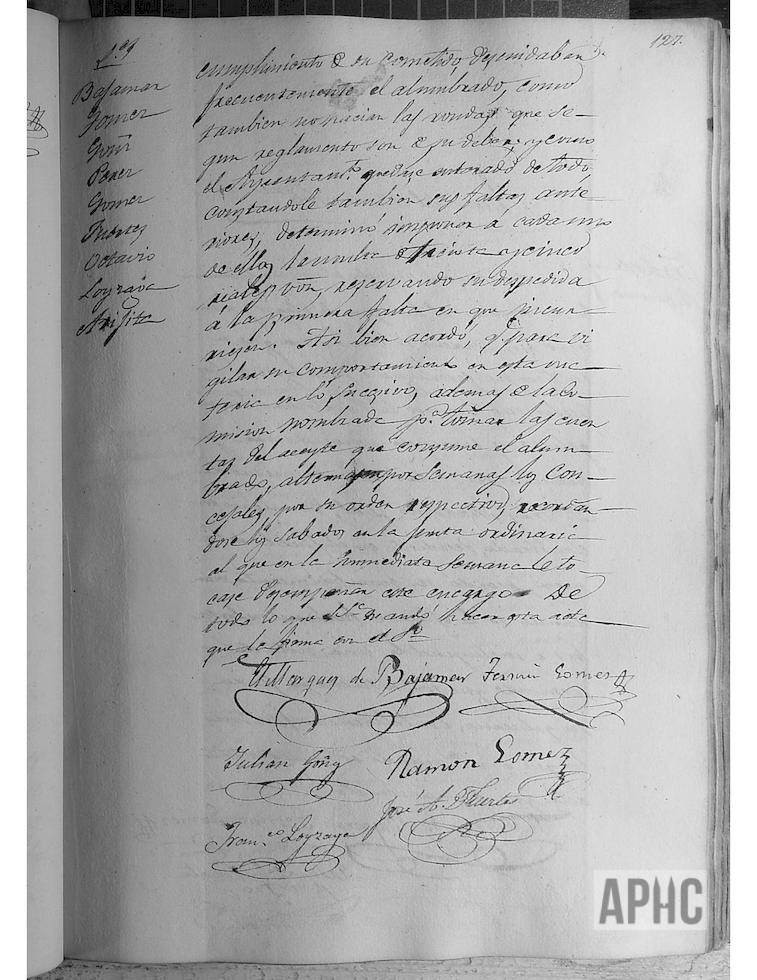 127.
S.res
Bajamar
Gomez
Goñi
Perez
Gomez
Puertes
Octavio
Loyzaga
Arizita
cumplimiento de su cometido, descuidaban
frecuentemente el alumbrado, como
tambien no hacian las rondas que se-
gun reglamento son de su deber, y como
el Ayuntam.to quedase enterado de todo,
constandole tambien sus faltas ante-
riores, determinó imponer á cada uno
de ellos la multa de treinta y cinco
reales von, reservando su despedida
á la primera falta en que incur-
riesen. Asi bien acordó, q.e para vi
gilar su comportamiento en esta ma-
teria en lo sucesivo, ademas de la co-
mision nombrada p.a tomar las cuen
tas del aceyte que consume el alum-
brado, alternasen por semanas los Con-
cejales por su orden respectivo, recordan-
dose los sabados en la junta ordinaria
al que en la immediata semana le to
case desempeñar este encargo. De
todo lo que S.S. mandó hacer esta acta
que la firma con el S.r
El Marques de Bajamar Fermin Gomez
Julian Goñi Ramon Gomez
José A. Puertes
Fran.co Loyzaga
APHC